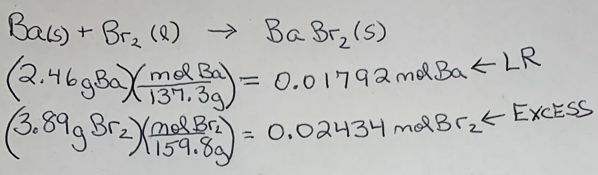 Ba(s) + Br₂ (l) → BaBr₂(s)
(2.46gBa)(mol Ba/137.3g) = 0.01792 mol Ba ← LR
(3.89g Br₂)(mol Br₂/159.8g) = 0.02434 mol Br₂ ← EXCESS